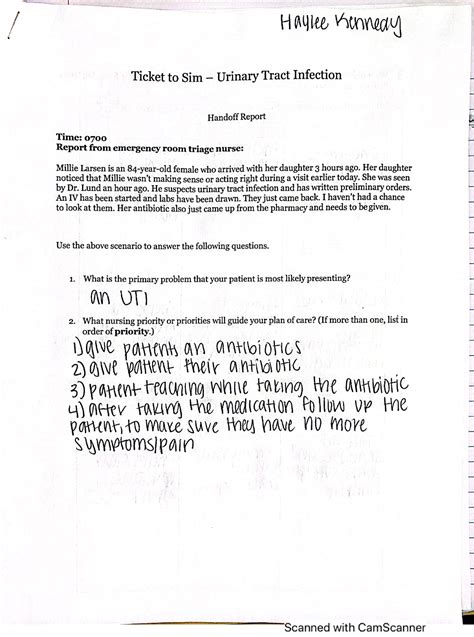 Haylee Kennedy
Ticket to Sim – Urinary Tract Infection
Handoff Report
Time: 0700
Report from emergency room triage nurse:
Millie Larsen is an 84-year-old female who arrived with her daughter 3 hours ago. Her daughter
noticed that Millie wasn't making sense or acting right during a visit earlier today. She was seen
by Dr. Lund an hour ago. He suspects urinary tract infection and has written preliminary orders.
An IV has been started and labs have been drawn. They just came back. I haven't had a chance
to look at them. Her antibiotic also just came up from the pharmacy and needs to be given.
Use the above scenario to answer the following questions.
1. What is the primary problem that your patient is most likely presenting?
an UTI
2. What nursing priority or priorities will guide your plan of care? (If more than one, list in
order of priority.)
1) give patients an antibiotics
2) give patient their antibiotic
3) patient teaching while taking the antibiotic
4) after taking the medication follow up the
patient, to make sure they have no more
symptoms/pain
Scanned with CamScanner